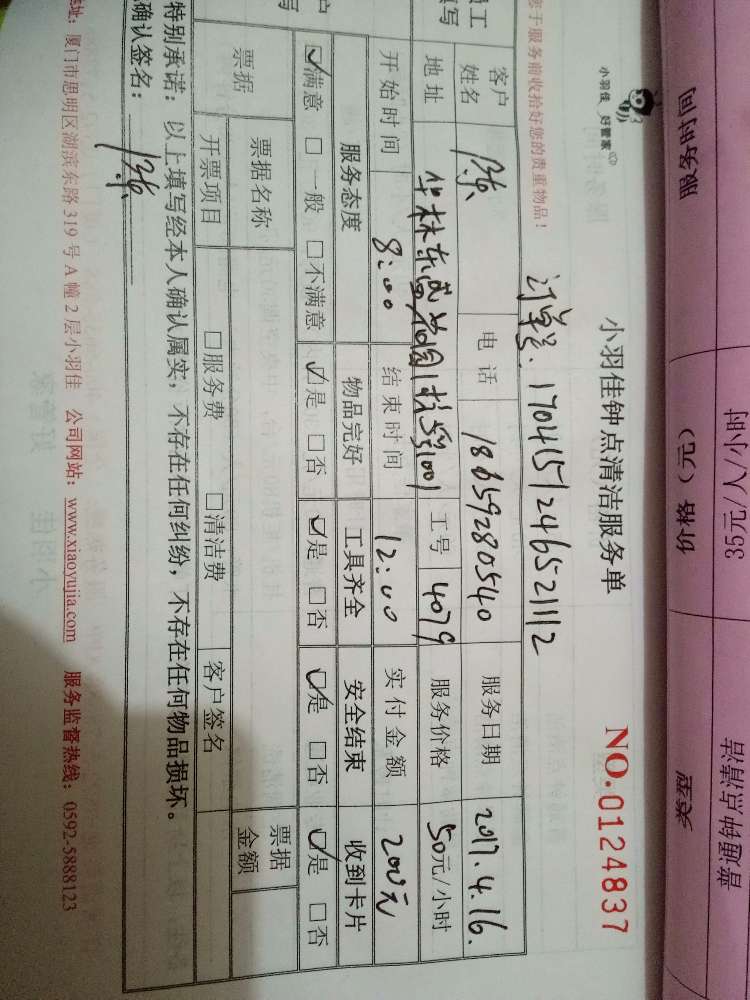 服务时间
价格（元）
类型
35元/人/小时
普通钟点清洁
小羽佳 好管家
小羽佳钟点清洁服务单
NO.0124837
于服务前收拾好您的贵重物品！
订单号：1704151246521112
客户姓名
陈
电话
18659280540
服务日期
2017.4.16.
员工
填写
地址
工号
4079
服务价格
50元/小时
开始时间
8:00
结束时间
12:00
实付金额
200元
服务态度
物品完好
工具齐全
安全结束
收到卡片
☑满意 □一般 □不满意
☑是 □否
☑是 □否
☑是 □否
☑是 □否
票据
票据名称
票据金额
开票项目
□服务费
□清洁费
客户签名
特别承诺：以上填写经本人确认属实，不存在任何纠纷，不存在任何物品损坏。
确认签名：陈
址：厦门市思明区湖滨东路 319 号 A 幢 2 层小羽佳 公司网站：www.xiaoyujia.com 服务监督热线：0592-5888123